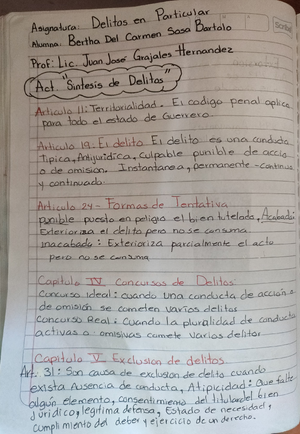 Asignatura: Delitos en Particular
Alumna: Bertha Del Carmen Sosa Bartolo
Prof: Lic. Juan José Grajales Hernandez
Act. "Sintesis de Delitos"
Articulo 11: Territorialidad. El codigo penal aplica
para todo el estado de Guerrero.
Articulo 19. El delito El delito es una conducta
Tipica, Antijuidica, Culpable punible de acción
o de omision. Instantanea, permanente-continua
y continuado.
Articulo 24- Formas de Tentativa
punible puesto en peligro el bien tutelado, Acabado:
Exterioriza el delito pero no se consuma
inacabado: Exterioriza parcialmente el acto
pero no se consuma.
Capitulo IV. Concursos de Delitos:
Concurso Ideal: cuando una conducta de acción o
de omisión se cometen varios delitos
Concurso Real: Cuando la pluralidad de conductas
activas o omisivas comete varios delitos
Capitulo V. Exclusion de delitos.
Art. 31: Son causa de exclusion de delito cuando
exista Ausencia de conducta, Atipicidad: Que falte
algún elemento, consentimiento del titular del bien
Juridico, legitima defensa, Estado de necesidad,
cumplimiento del deber y ejercicio de un derecho.